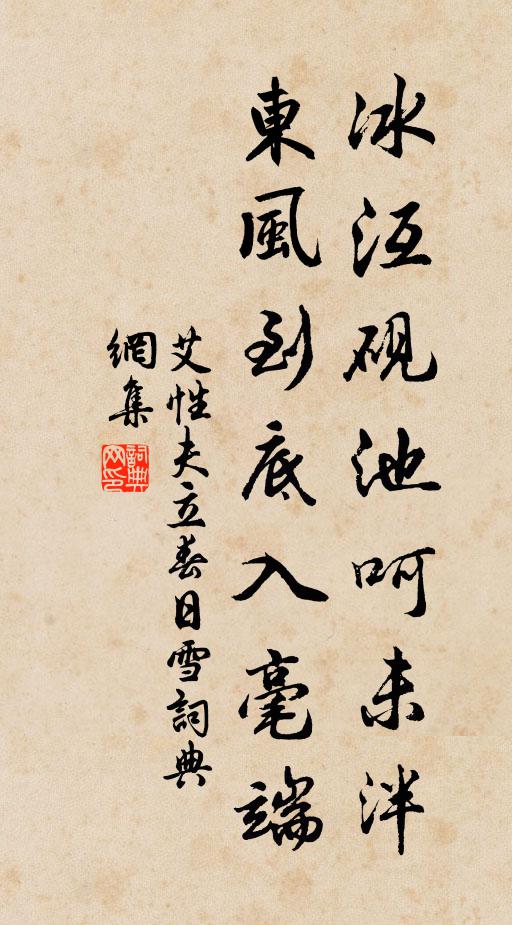 冰沍硯池呵未泮
東風到底入毫端
艾性夫立春日雪詞典
網集
詞典
网印